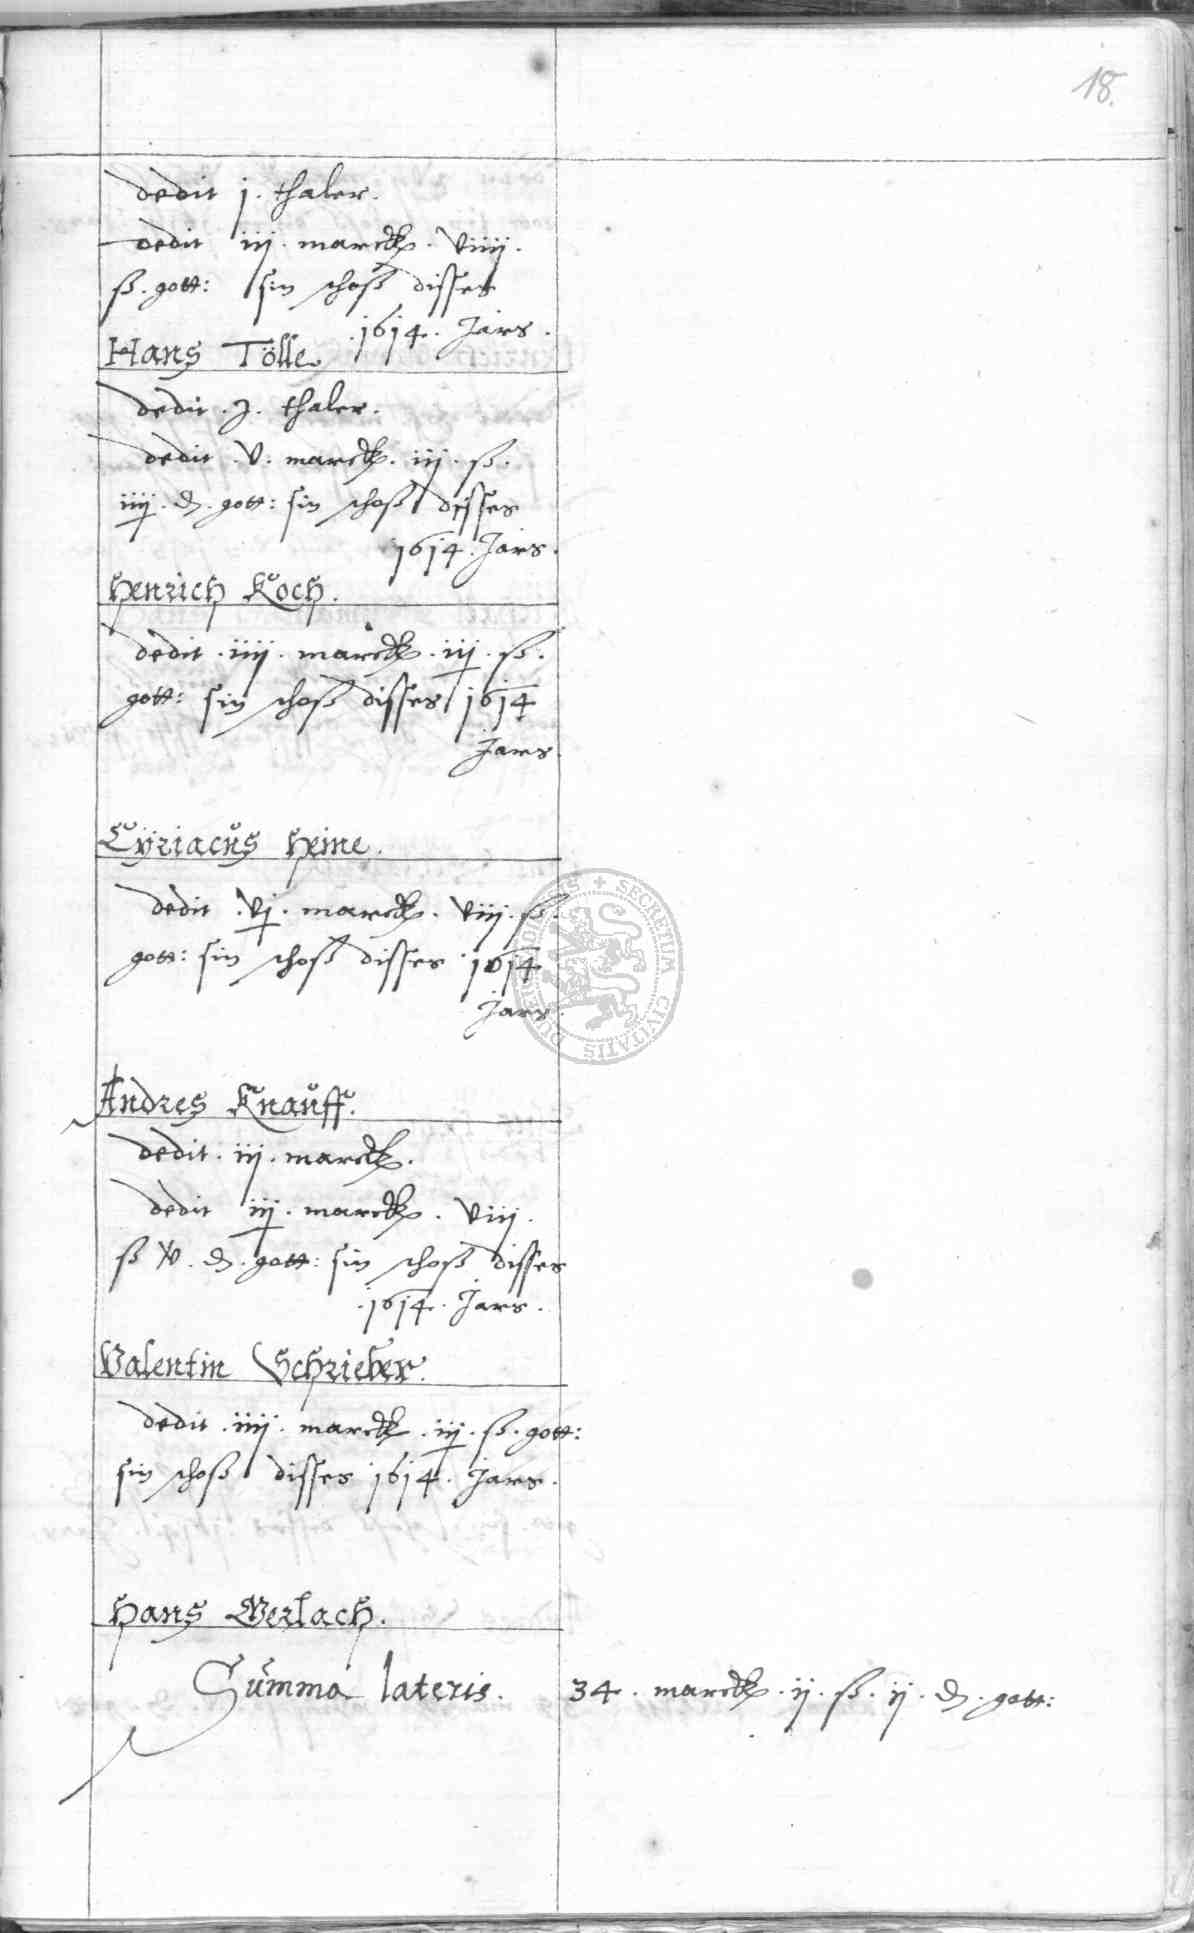 18.
dedit j. thaler.
dedit iij. marck. viiij.
ß. gott: sin schoß disses
.1614. Jars.
Hans Tölle.
dedit .j. thaler.
dedit .v. marck. iij. ß.
iiij. ₰. gott: sin schoß disses
1614. Jars.
Henrich Koch.
dedit .iiij. marck. iij. ß.
gott: sin schoß disses 1614
Jars.
Cÿriacus Heine.
dedit .vj. marck. viij. ß.
gott: sin schoß disses 1614
Jars.
Andres Knauff.
dedit. iij. marck.
dedit iij. marck. viij.
ß v. ₰. gott: sin schoß disses
.1614. Jars.
Valentin Schrieber.
dedit .iiij. marck. iij. ß. gott:
sin schoß disses 1614. Jars.
Hans Gerlach.
Summa lateris. 34. marck. ij. ß. ij. ₰. gott:
SECRETUM CIVITATIS